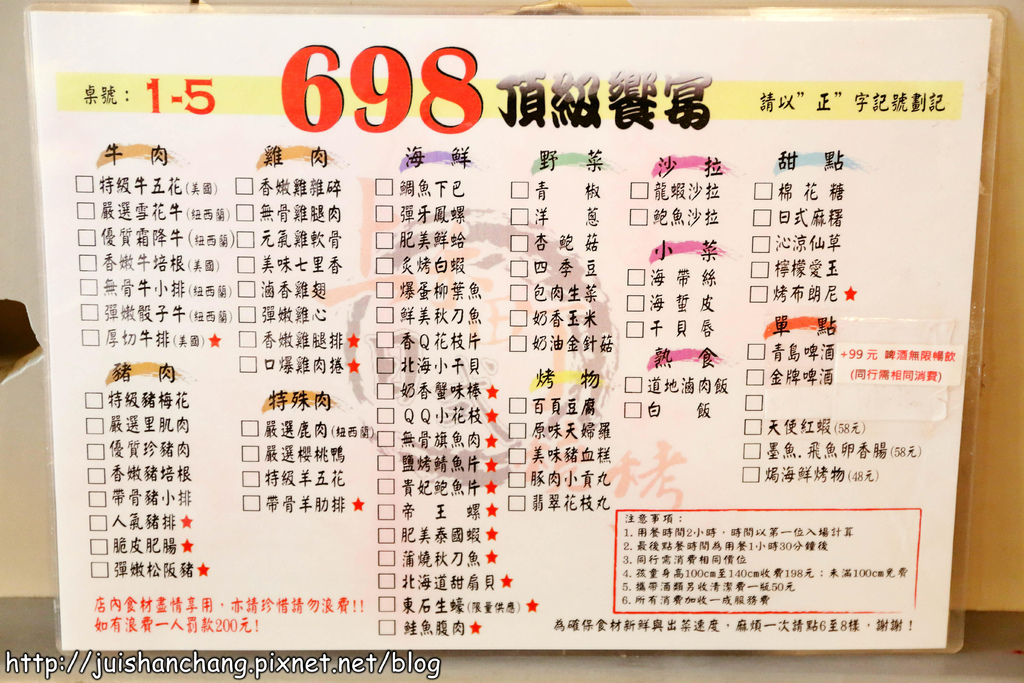 桌號：1-5
698 頂級饗宴
請以”正”字記號劃記
牛肉
特級牛五花(美國)
嚴選雪花牛(紐西蘭)
優質霜降牛(紐西蘭)
香嫩牛培根(美國)
無骨牛小排(紐西蘭)
彈嫩骰子牛(紐西蘭)
厚切牛排(美國)★
豬肉
特級豬梅花
嚴選里肌肉
優質珍豬肉
香嫩豬培根
帶骨豬小排
人氣豬排★
脆皮肥腸★
彈嫩松阪豬★
雞肉
香嫩雞雜碎
無骨雞腿肉
元氣雞軟骨
美味七里香
滷香雞翅
彈嫩雞心
香嫩雞腿排★
口爆雞肉捲★
特殊肉
嚴選鹿肉(紐西蘭)
嚴選櫻桃鴨
特級羊五花
帶骨羊肋排★
海鮮
鯛魚下巴
彈牙鳳螺
肥美鮮蛤
炙烤白蝦
爆蛋柳葉魚
鮮美秋刀魚
香Q花枝片
北海小干貝
奶香蟹味棒★
QQ小花枝★
無骨旗魚肉★
鹽烤鯖魚片★
貴妃鮑魚片★
帝王螺★
肥美泰國蝦★
蒲燒秋刀魚★
北海道甜扇貝★
東石生蠔(限量供應)★
鮭魚腹肉★
野菜
青椒
洋蔥
杏鮑菇
四季豆
包肉生菜
奶香玉米
奶油金針菇
烤物
百頁豆腐
原味天婦羅
美味豬血糕
豚肉小貢丸
翡翠花枝丸
沙拉
龍蝦沙拉
鮑魚沙拉
小菜
海帶絲
海蜇皮
干貝唇
熟食
道地滷肉飯
白飯
甜點
棉花糖
日式麻糬
沁涼仙草
檸檬愛玉
烤布朗尼★
單點
青島啤酒
金牌啤酒
+99元 啤酒無限暢飲
(同行需相同消費)
天使紅蝦(58元)
墨魚.飛魚卵香腸(58元)
焗海鮮烤物(48元)
注意事項：
1.用餐時間2小時，時間以第一位入場計算
2.最後點餐時間為用餐1小時30分鐘後
3.同行需消費相同價位
4.孩童身高100cm至140cm收費198元；未滿100cm免費
5.攜帶酒類另收清潔費一瓶50元
6.所有消費加收一成服務費
店內食材盡情享用，亦請珍惜請勿浪費!!
如有浪費一人罰款200元!
為確保食材新鮮與出菜速度，麻煩一次請點6至8樣，謝謝！
http://juishanchang.pixnet.net/blog